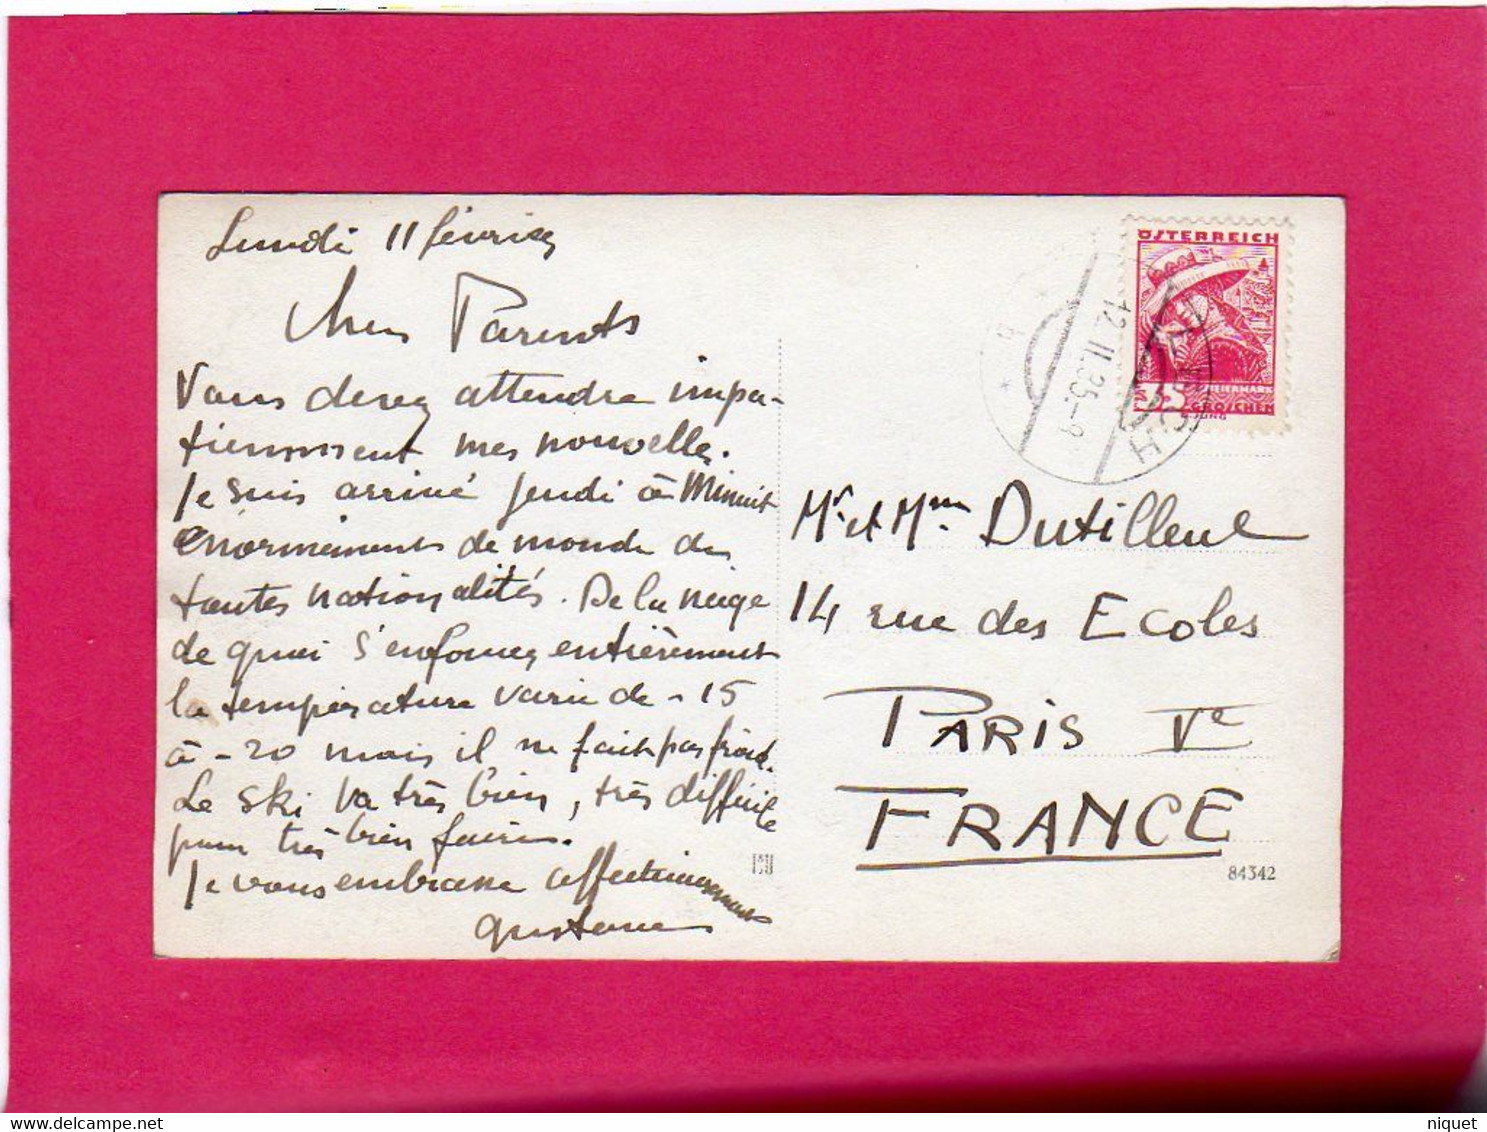 Lundi 11 février
Chers Parents
Vous devez attendre impa-
tiemment mes nouvelles.
Je suis arrivé jeudi à Minuit
énormément de monde de
toutes nationalités. De la neige
de quoi s'enfoncer entièrement
la température varie de -15
à -20 mais il ne fait pas froid.
Le ski va très bien, très difficile
pour très bien faire.
Je vous embrasse affectueusement
Gustave
ÖSTERREICH
STEIERMARK
35 GROSCHEN
12.II.35.-9
Mr et Mme Dutilleul
14 rue des Ecoles
PARIS Ve
FRANCE
84342
niquet